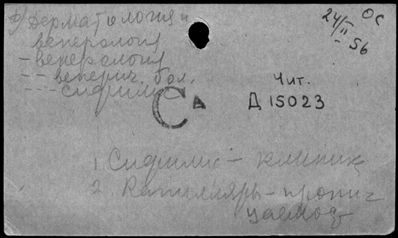 Дерматология и
венерология
- венерология
- - венерич. бол.
- - - сифилис
24/II
- 56
ОС
Чит.
Д 15023
СА
1 Сифилис - клиник
2. Капилляры - прониц